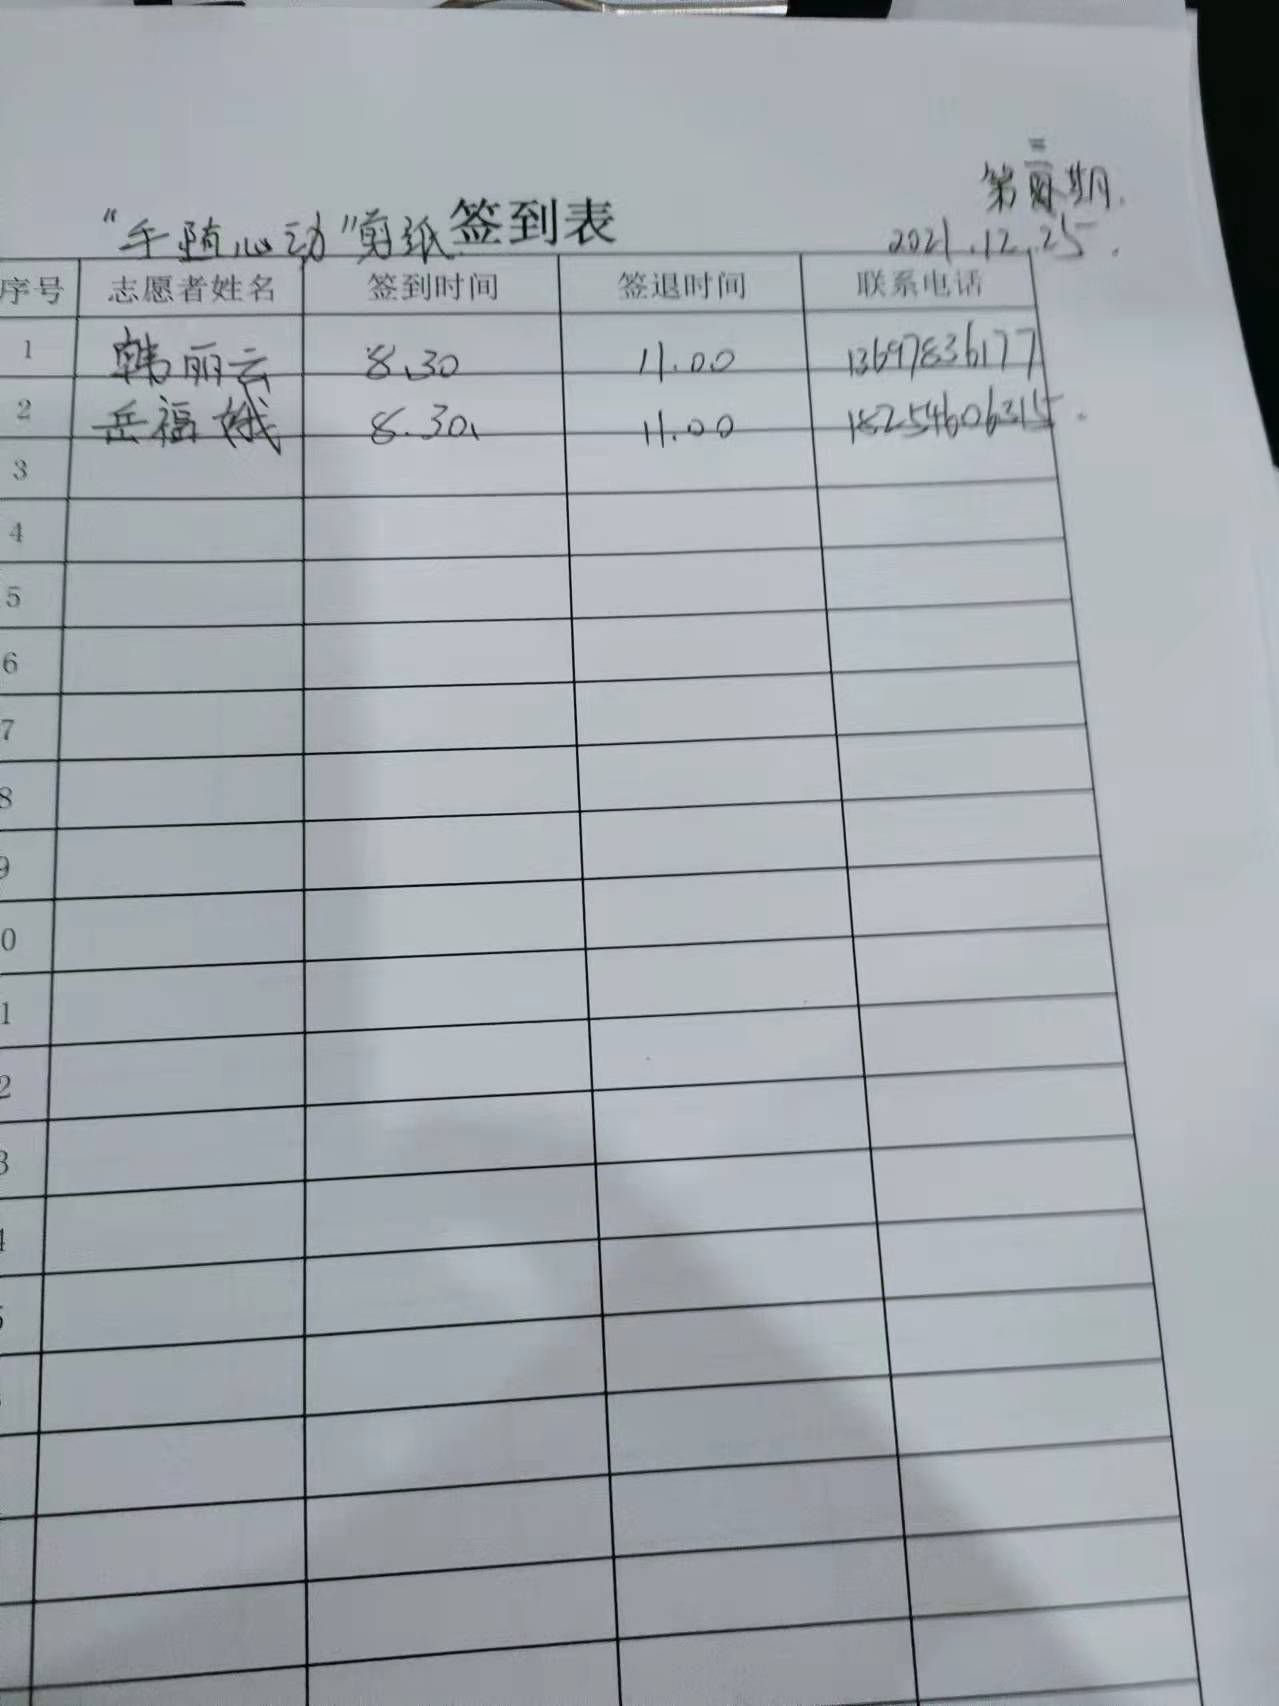 第三期.
"手随心动"剪纸 签到表
2021.12.25.
序号 志愿者姓名 签到时间 签退时间 联系电话
1 韩丽云 8.30 11.00 13697836177
2 岳福娥 8.30 11.00 18254606315.
3
4
5
6
7
8
9
0
1
2
3
4
5